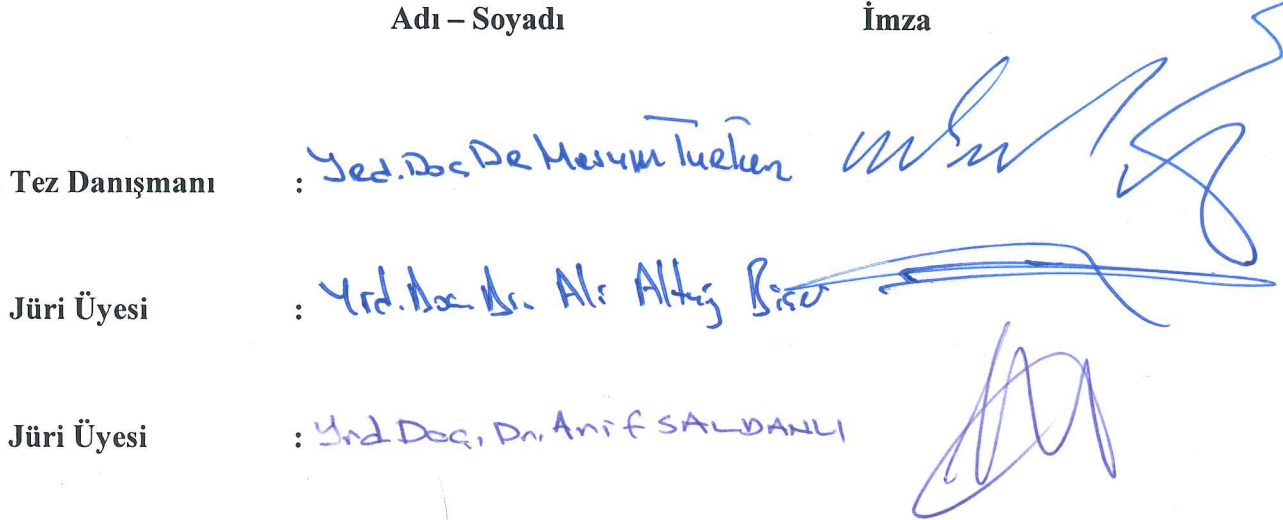 Adı – Soyadı İmza
Tez Danışmanı : Yrd. Doç Dr
Jüri Üyesi : Yrd. Doç. Dr. Ali Altuğ Biçer
Jüri Üyesi : Yrd. Doç, Dr. Arif SALDANLI